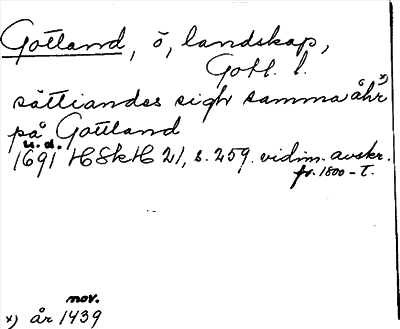 Gotland, ö, landskap,
Gotl. l.
sättiandes sigh samma åhr x)
på Gottland
u.d.
1691 HSkH 21, s. 259. vidim. avskr.
fr. 1800-t.
nov.
x) år 1439